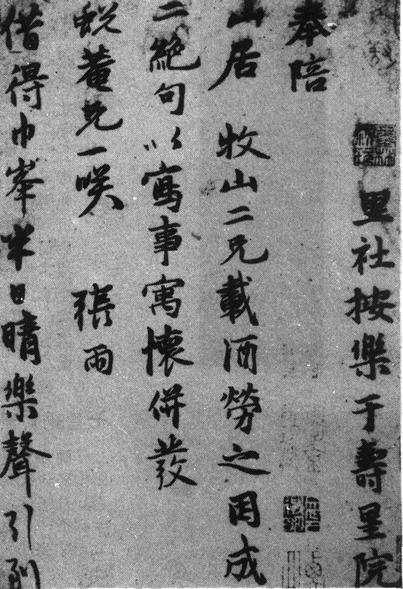 里社按樂于壽星院
奉陪
山居 牧山二兄載酒勞之因成
二絕句以寫事寓懷併發
菴兄一咲 張雨
借得巾峯半日晴樂聲引到